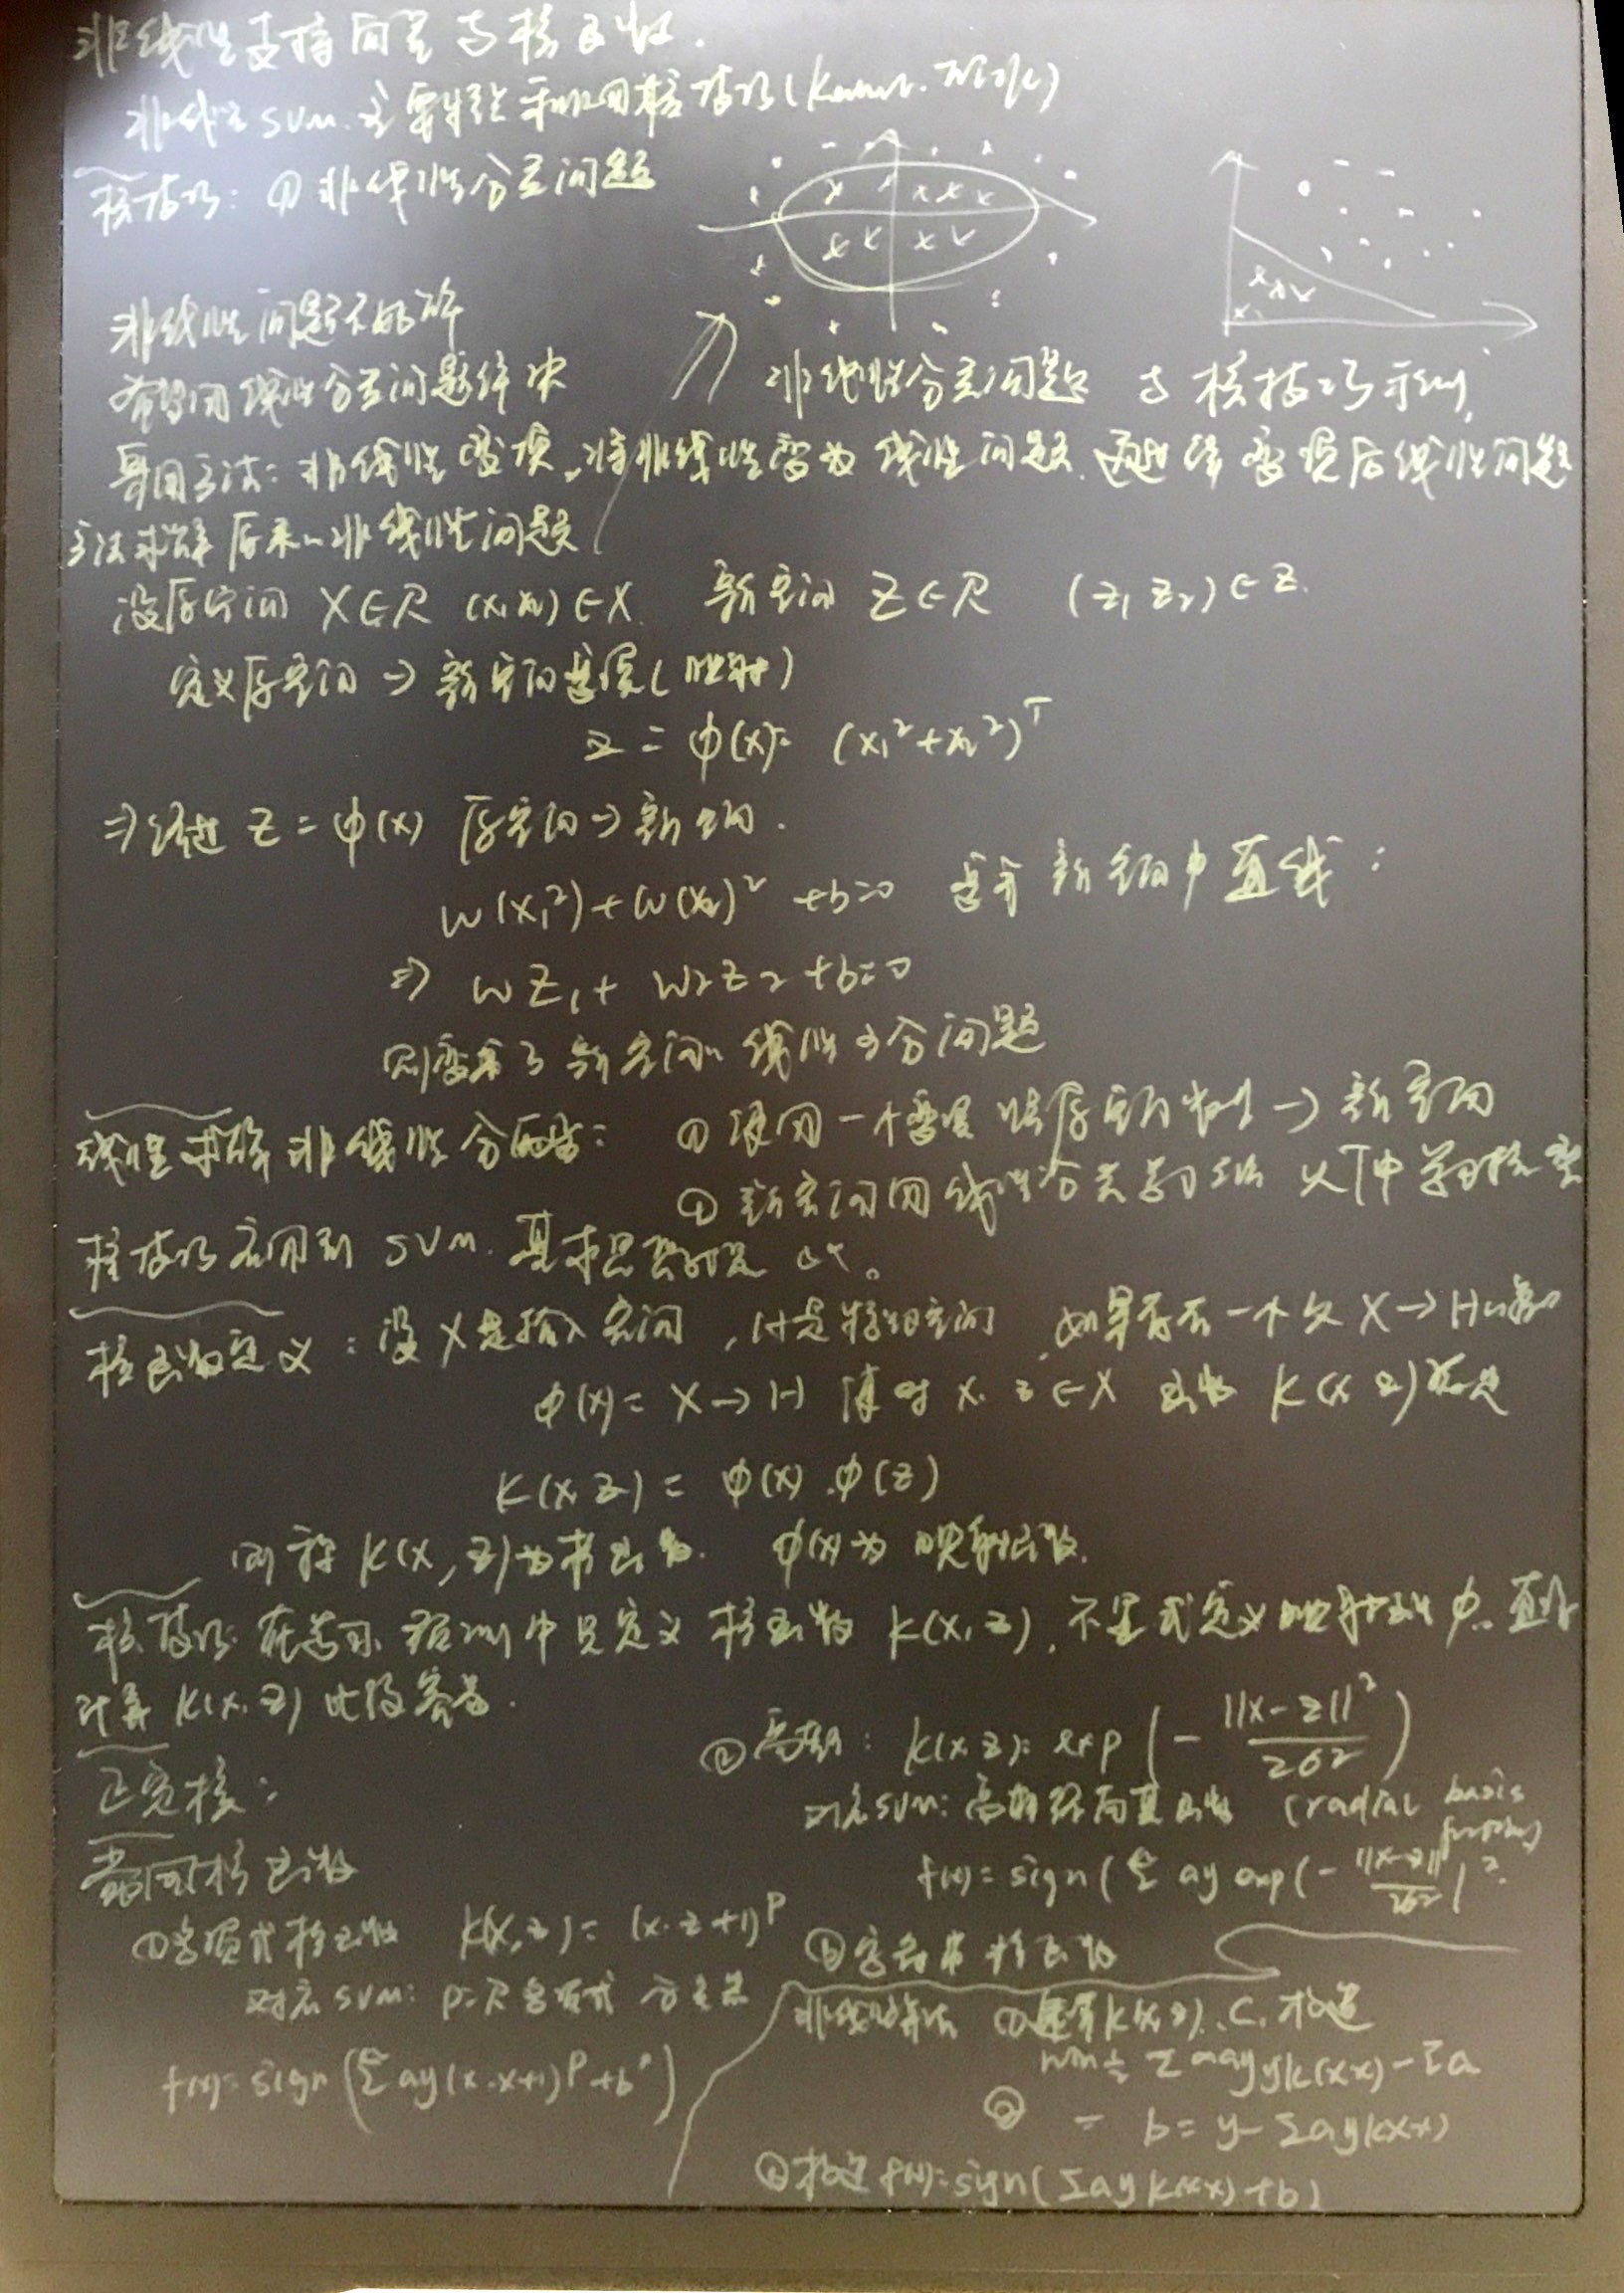 非线性支持向量与核函数.
非线性SVM.主要特征利用核技巧(Kernel.
核技巧: ① 非线性分类问题
非线性问题不好解
希望用线性分类问题解决
非线性分类问题 与核技巧示例
采用方法: 非线性变换,将非线性变为线性问题.通过解变换后线性问题
方法求解原来的非线性问题
设原空间 X∈R (x₁ x₂)∈X. 新空间 Z∈R (z₁ z₂)∈Z.
定义原空间→新空间变换(映射)
z = φ(x)= (x₁²+x₂²)ᵀ
⇒经过 Z = φ(x) 原空间→新空间.
w(x₁²)+w(x₂)² +b=0 变为 新空间中直线:
⇒ wZ₁+ w₂z₂ +b=0
则变为了新空间的线性可分问题
线性求解非线性分 : ① 使用一个变换将原空间数据→新空间
① 新空间用线性分类学习方法 从 中学习模型
核技巧应用到 SVM.基本思想就是 。
核函数定义: 设X是输入空间,H是特征空间 如果存在一个从X→H的
φ(x)= X→H 使对 x. z∈X 函数 K(x z)满足
K(x z)= φ(x).φ(z)
则称 K(x,z)为核函数. φ(x)为映射函数.
核技巧:在学习 预测中只定义核函数 K(x,z),不显式定义映射函数φ. 直接
计算 K(x,z) 比较容易.
正定核:
常用核函数
①多项式核函数 K(x,z)= (x·z+1)ᵖ
对应SVM: p次多项式 分类器
f(x)=sign(Σay(x·x+1)ᵖ+b*)
② 高斯: K(x,z)= exp(-||x-z||²/2σ²)
对应SVM: 高斯径向基函数 (radial basis function)
f(x)=sign(Σ ay exp(-||x-z||/2σ²)²
③字符串核函数
非线性算法 ①选择K(x,z)、C,构造
min ½ ΣaayyK(x x)-Σa
② = b= y-ΣayK(x x)
③构造 f(x)=sign(ΣayK(x x)+b)